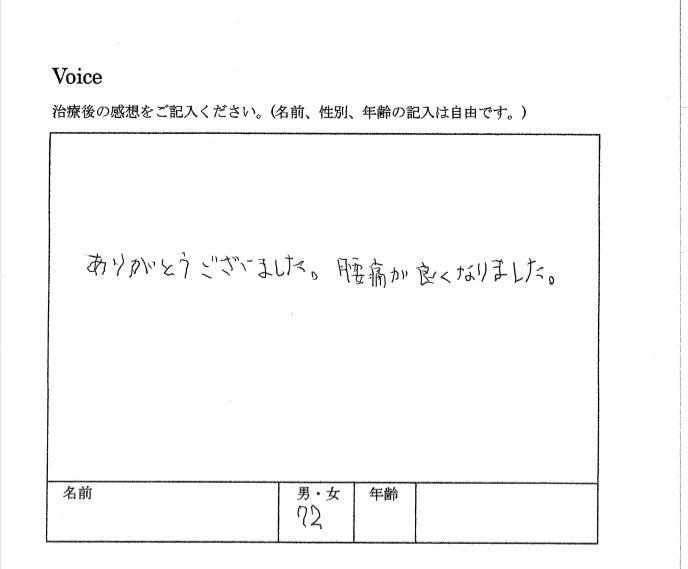 Voice
治療後の感想をご記入ください。(名前、性別、年齢の記入は自由です。)
ありがとうございました。腰痛が良くなりました。
名前
男・女
年齢
72